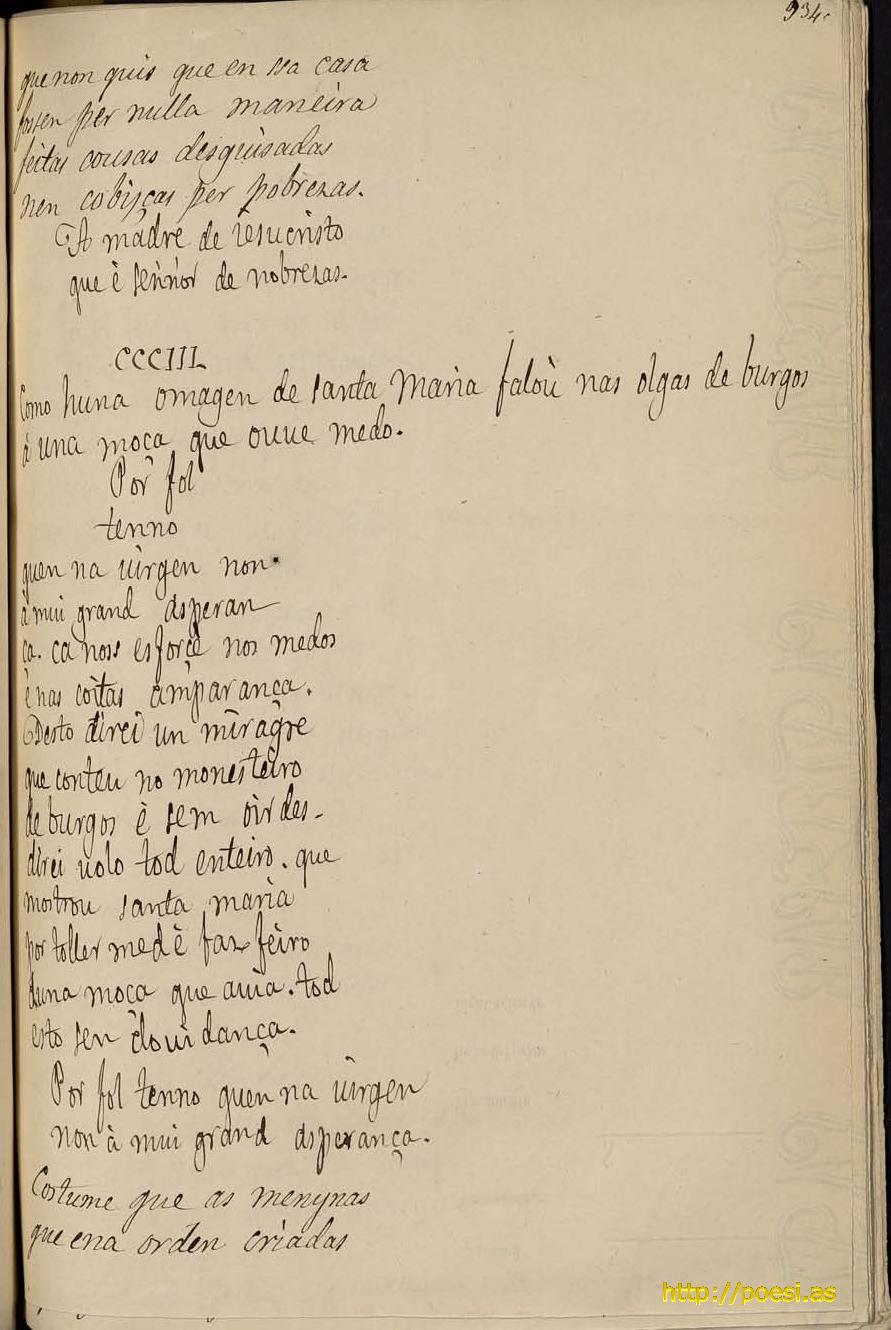 934.
que non quis que en ssa casa
fossen per nulla maneira
feitas cousas desguisadas
nen cobiiças per pobrezas.
A madre de iesucristo
que è sennor de nobrezas.
CCCIII
Como huna omagen de santa Maria falou nas olgas de burgos
à una moça que ouue medo.
Por fol
tenno
quen na uirgen non
à mui grand asperan
ça. ca noss esforçè nos medos
è nas coitas amparança.
Desto direi un miragre
que conteu no monesteiro
de burgos è sem oirdes.
direi uolo tod enteiro. que
mostrou santa maria
por toller medè fazfeiro
duna moça que auia. tod
esto sen douidança.
Por fol tenno quen na uirgen
non à mui grand asperança.
Costume que as menynas
que ena orden criadas
http://poesi.as